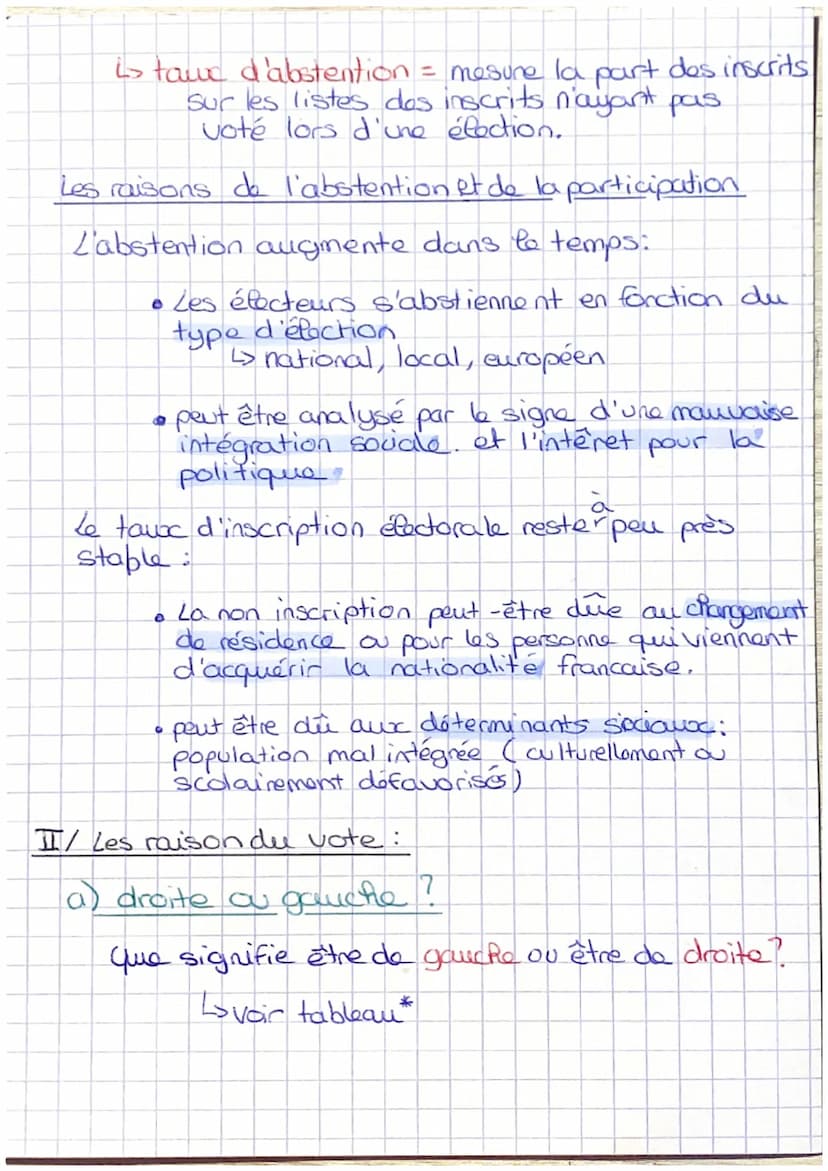 ↳ taux d'abstention = mesure la part des inscrits
sur les listes des inscrits n'ayant pas
voté lors d'une élection.
Les raisons de l'abstention et de la participation
L'abstention augmente dans le temps:
• Les électeurs s'abstiennent en fonction du
type d'élection
↳ national, local, européen
• peut être analysé par le signe d'une mauvaise
intégration sociale. et l'intêret pour la
politique.
Le taux d'inscription électorale rester à peu près
stable :
• La non inscription peut-être dûe au changement
de résidence ou pour les personne qui viennent
d'acquérir la nationalité francaise.
• peut être dû aux déterminants sociaux:
population mal intégrée (culturellement ou
scolairement défavorisés)
II/ Les raison du vote :
a) droite ou gauche ?
Que signifie être de gauche ou être de droite?
↳ voir tableau*